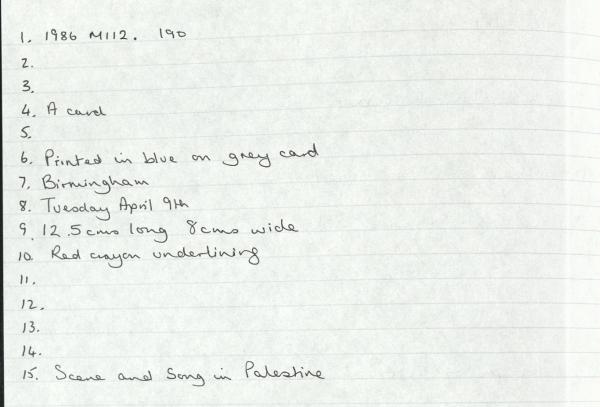 1. 1986 M112. 190
2.
3.
4. A card
5.
6. Printed in blue on grey card
7. Birmingham
8. Tuesday April 9th
9. 12.5cms long 8cms wide
10. Red crayon underlining
11.
12.
13.
14.
15. Scene and Song in Palestine